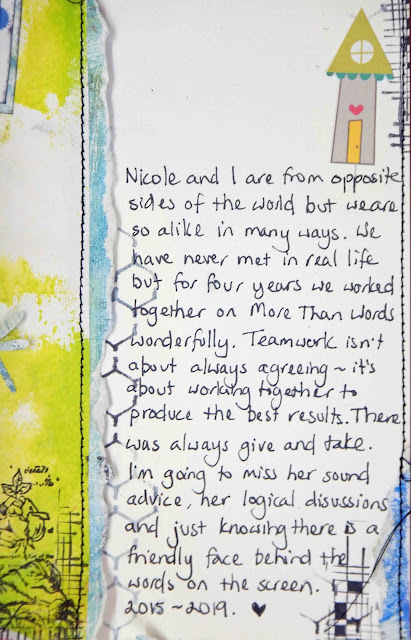 Nicole and I are from opposite
sides of the world but we are
so alike in many ways. We
have never met in real life
but for four years we worked
together on More Than Words
wonderfully. Teamwork isn't
about always agreeing ~ it's
about working together to
produce the best results. There
was always give and take.
I'm going to miss her sound
advice, her logical disussions
and just knowing there is a
friendly face behind the
words on the screen.
2015 ~ 2019. ♥